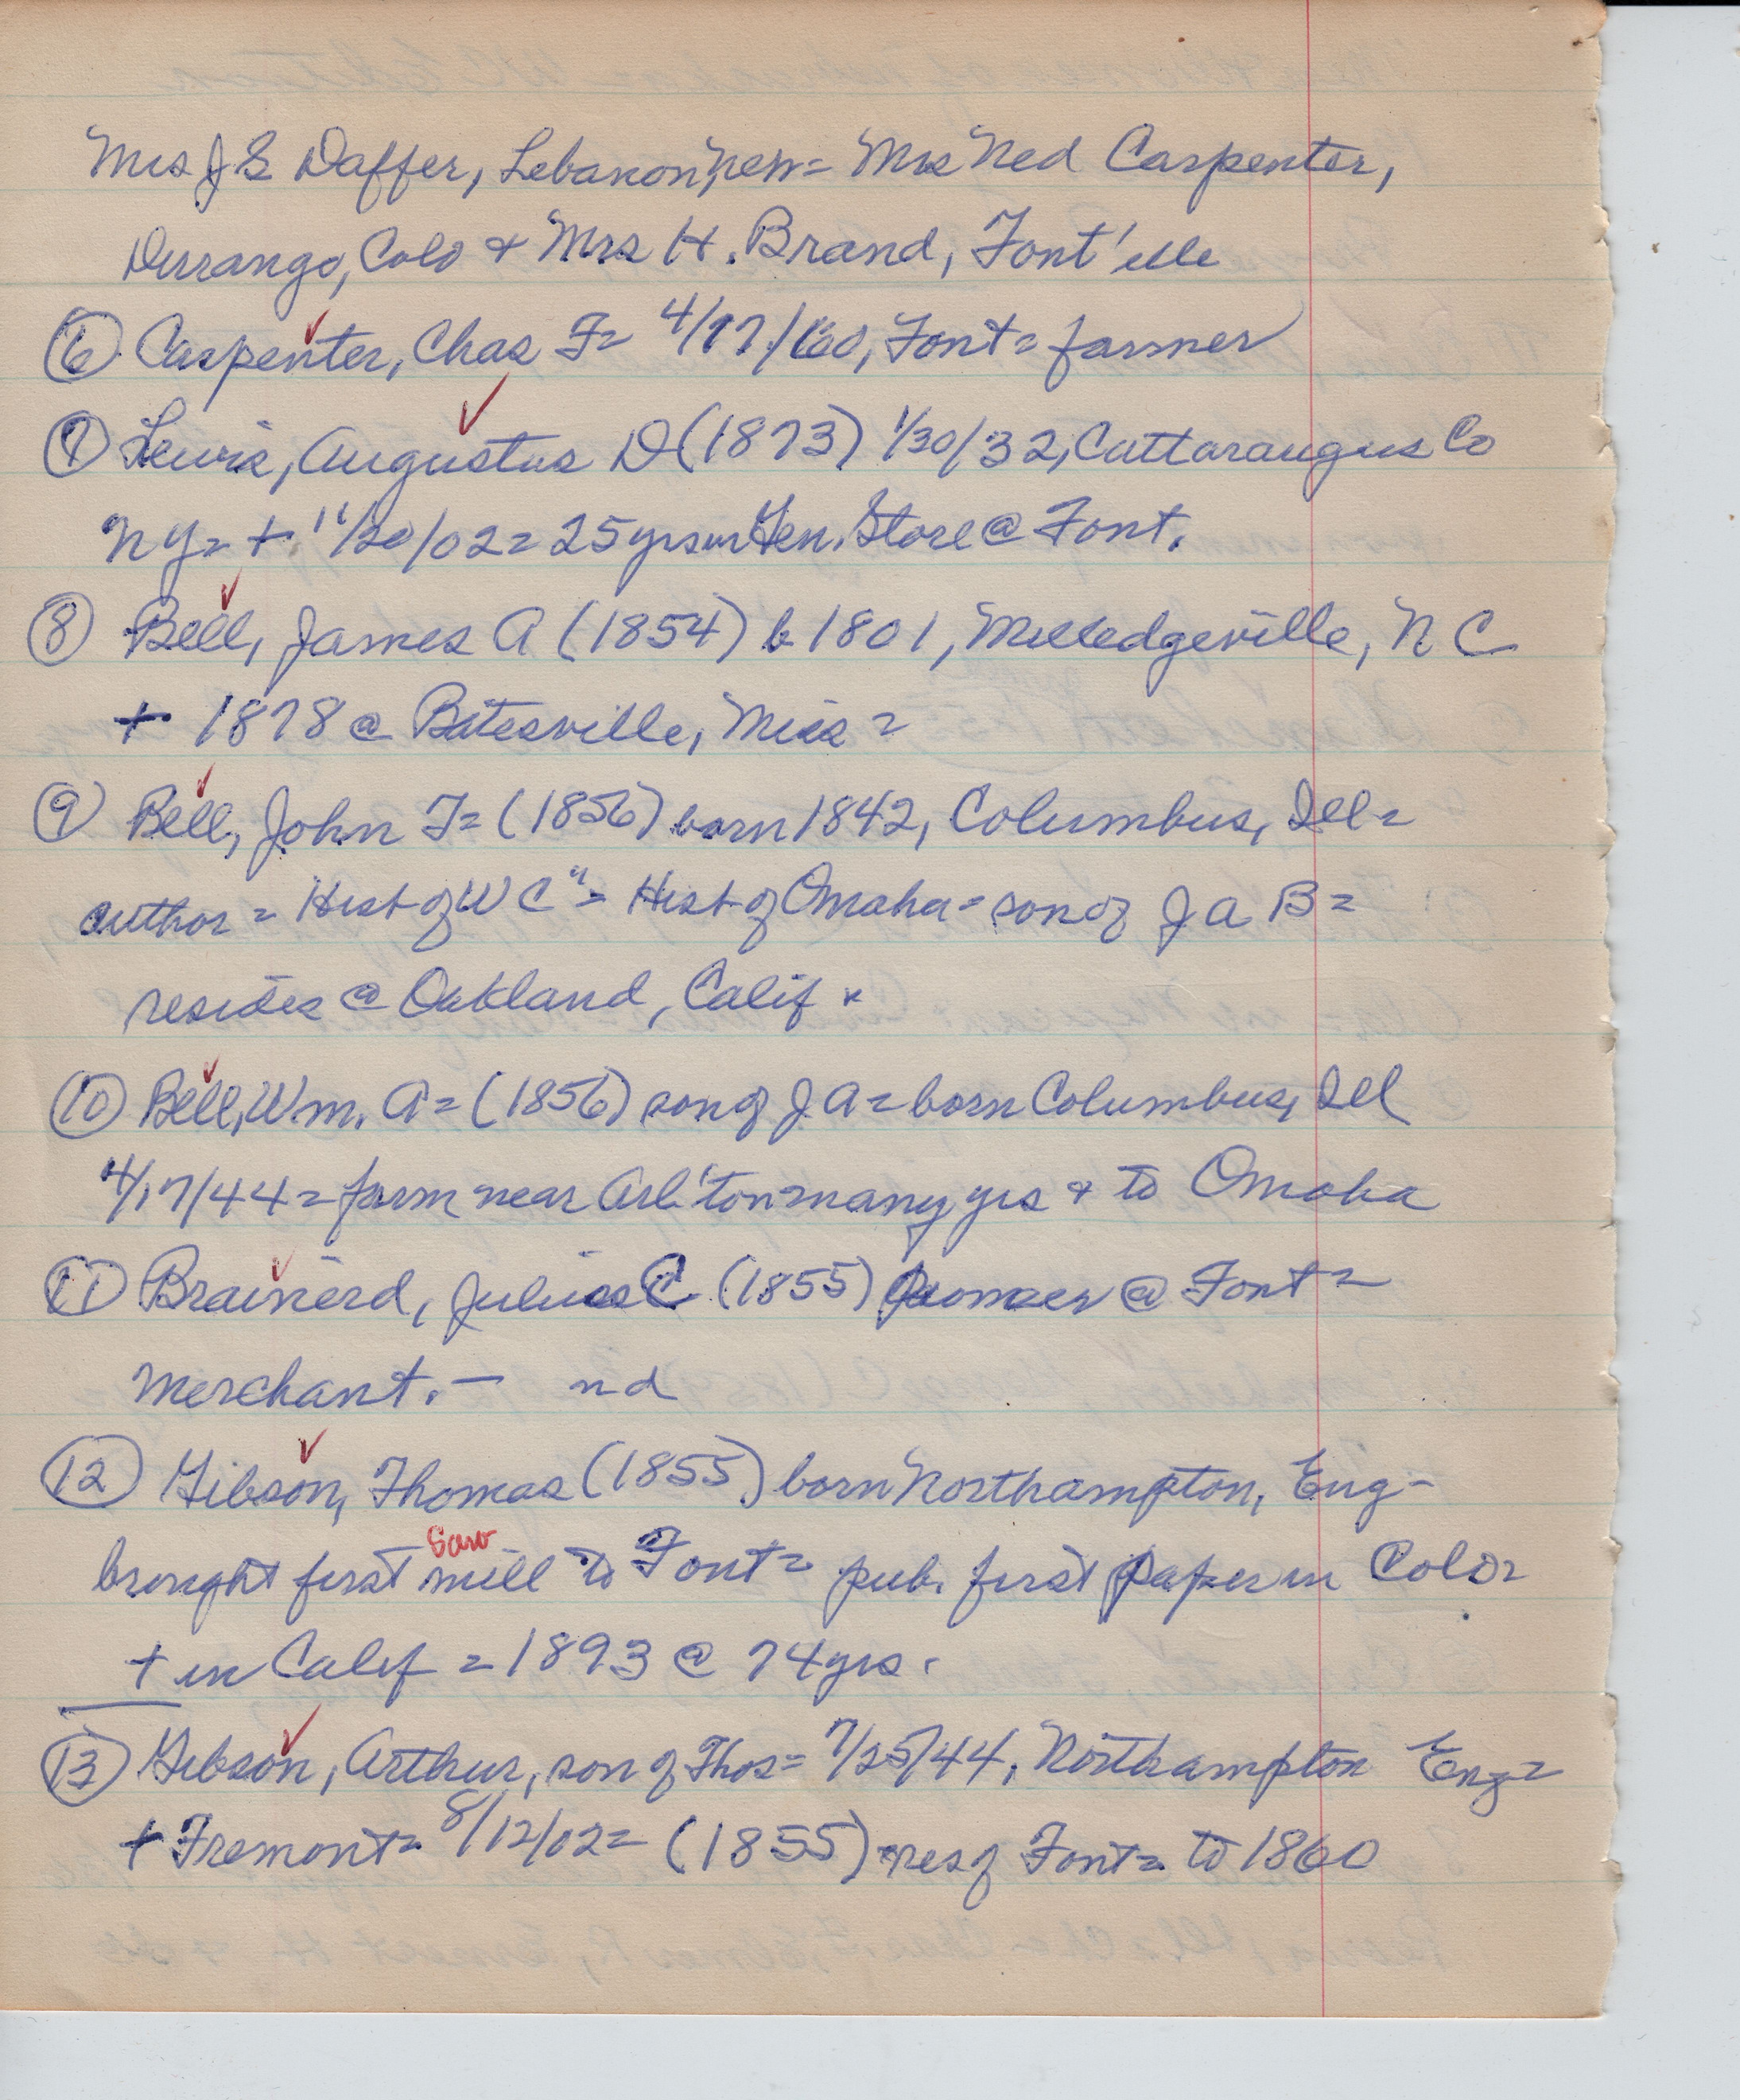 Mrs J S Daffer, Lebanon, = Mrs Ned Carpenter,
Durango, Colo + Mrs H. Brand, Font'elle
⑥ Carpenter, Chas F= 4/17/60, Font= farmer
⑦ Lewis, Augustus D (1873) 1/30/32, Cattaraugus Co
NY= + 11/20/02= 25 yrs in Gen. Store @ Font.
⑧ Bell, James A (1854) b 1801, Milledgeville, N C
+ 1878 @ Batesville, Miss =
⑨ Bell, John T= (1856) born 1842, Columbus, Ill=
author = Hist of W C" = Hist of Omaha = son of J A B=
resides @ Oakland, Calif
⑩ Bell, Wm. A= (1856) son of J A = born Columbus, Ill
4/17/44 = farm near Arl'ton many yrs + to Omaha
⑪ Brainerd, Julius C (1855) pioneer @ Font =
merchant. — nd
⑫ Gibson, Thomas (1855) born Northampton, Eng-
brought first saw mill to Font= pub. first paper in Colo=
+ in Calif = 1893 @ 74 yrs.
⑬ Gibson, Arthur, son of Thos= 7/25/44, Northampton Eng=
+ Fremont= 8/12/02= (1855) res of Font= to 1860